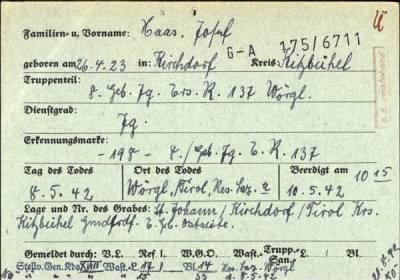 Familien- u. Vorname: Haas, Josef
G-A 175/6711
geboren am 26.4.23 in: Kirchdorf Kreis: Kitzbühel
Truppenteil:
8. Geb. Jg. Ers. R. 137 Wörgl.
Dienstgrad:
Jg.
Erkennungsmarke:
-198- 8./Geb. Jg. E. R. 137
Tag des Todes Ort des Todes Beerdigt am 10 15
8.5.42 Wörgl, Tirol, Res. Laz. 10.5.42
Lage und Nr. des Grabes: St. Johann / Kirchdorf / Tirol Krs.
Kitzbühel Ostseite.
Gemeldet durch: V.L. Ref. I. W.G.O. Wast.- Trupp.- San.- L. Bl.
Stellv. Gen. Kdo XVIII Wast. L. 17 Bl. 14 Res. Laz. Wörgl